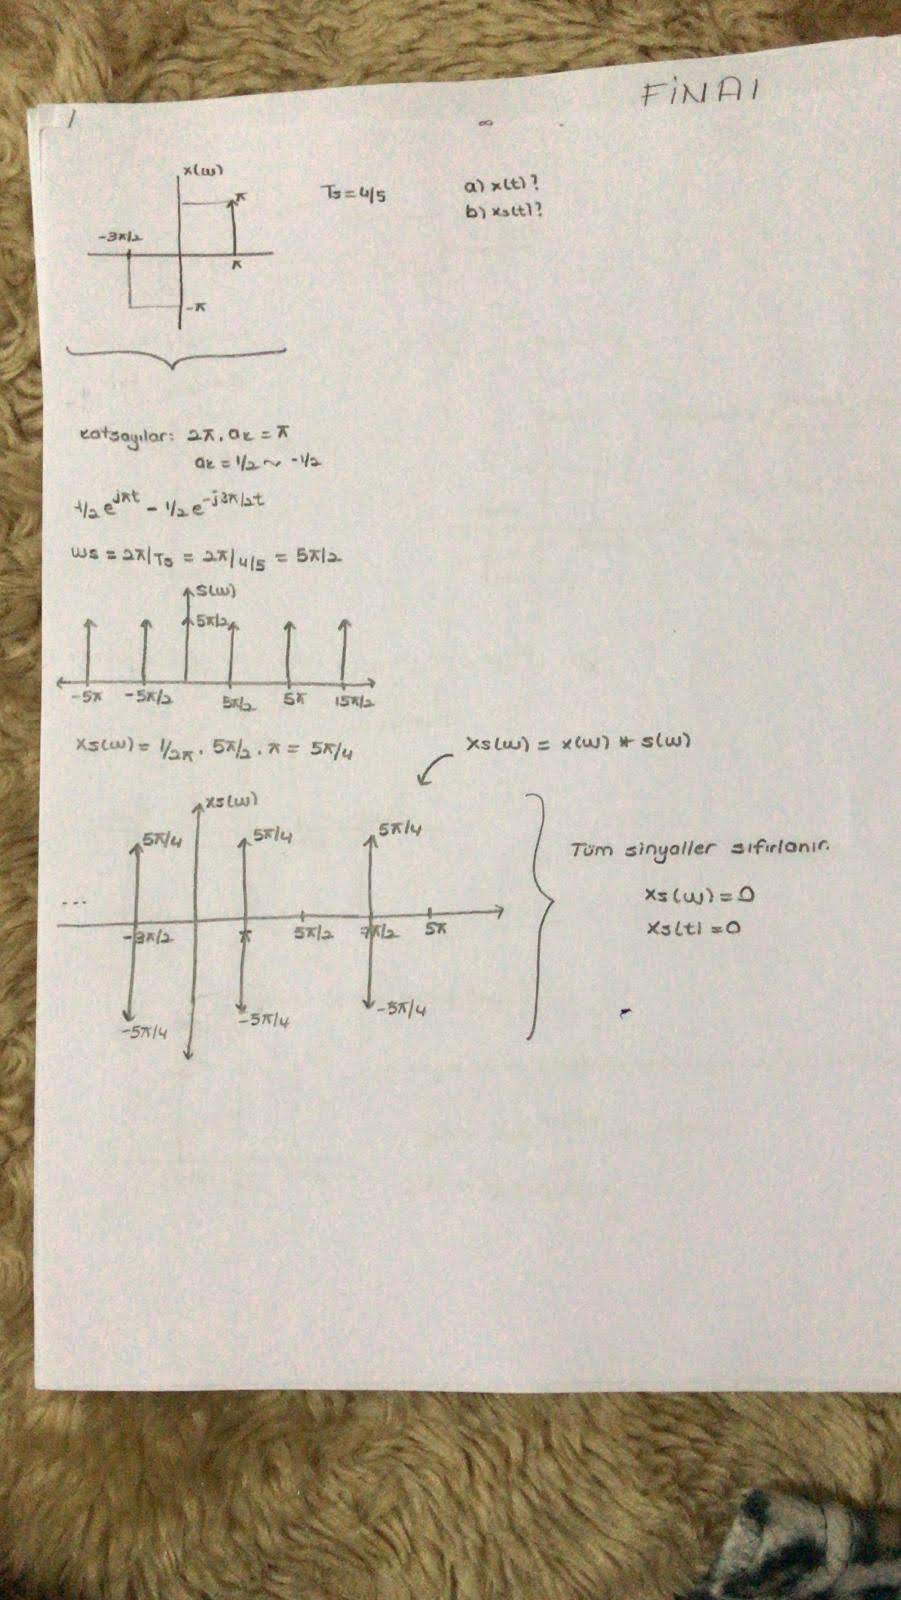 FİNAL
1
∞
x(w)
π
-3π/2
π
-π
Ts = 4/5
a) x(t)?
b) xs(t)?
katsayılar: 2π. ak = π
ak = 1/2 ~ -1/2
1/2 e^jπt - 1/2 e^-j3π/2t
ws = 2π/Ts = 2π/4/5 = 5π/2
s(w)
5π/2
-5π -5π/2 5π/2 5π 15π/2
Xs(w) = 1/2π . 5π/2 . π = 5π/4
Xs(w) = x(w) * s(w)
xs(w)
5π/4 5π/4 5π/4
...
-3π/2 π 5π/2 7π/2 5π
-5π/4 -5π/4 -5π/4
Tüm sinyaller sıfırlanır.
Xs(w) = 0
Xs(t) = 0